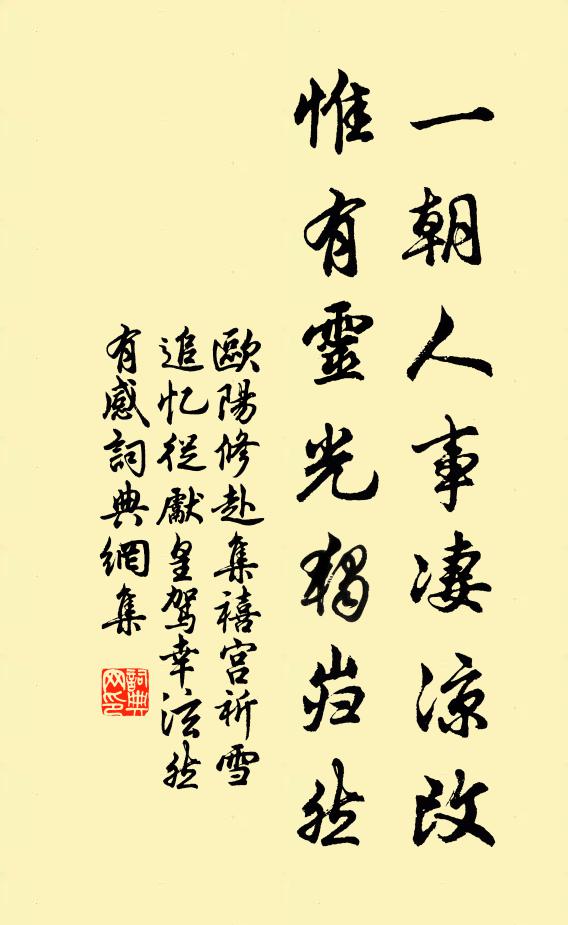 一朝人事凄凉改
惟有靈光独岿然
歐陽修赴集禧宫祈雪
追忆從獻皇駕幸泫然
有感詞典網集
詞典网印